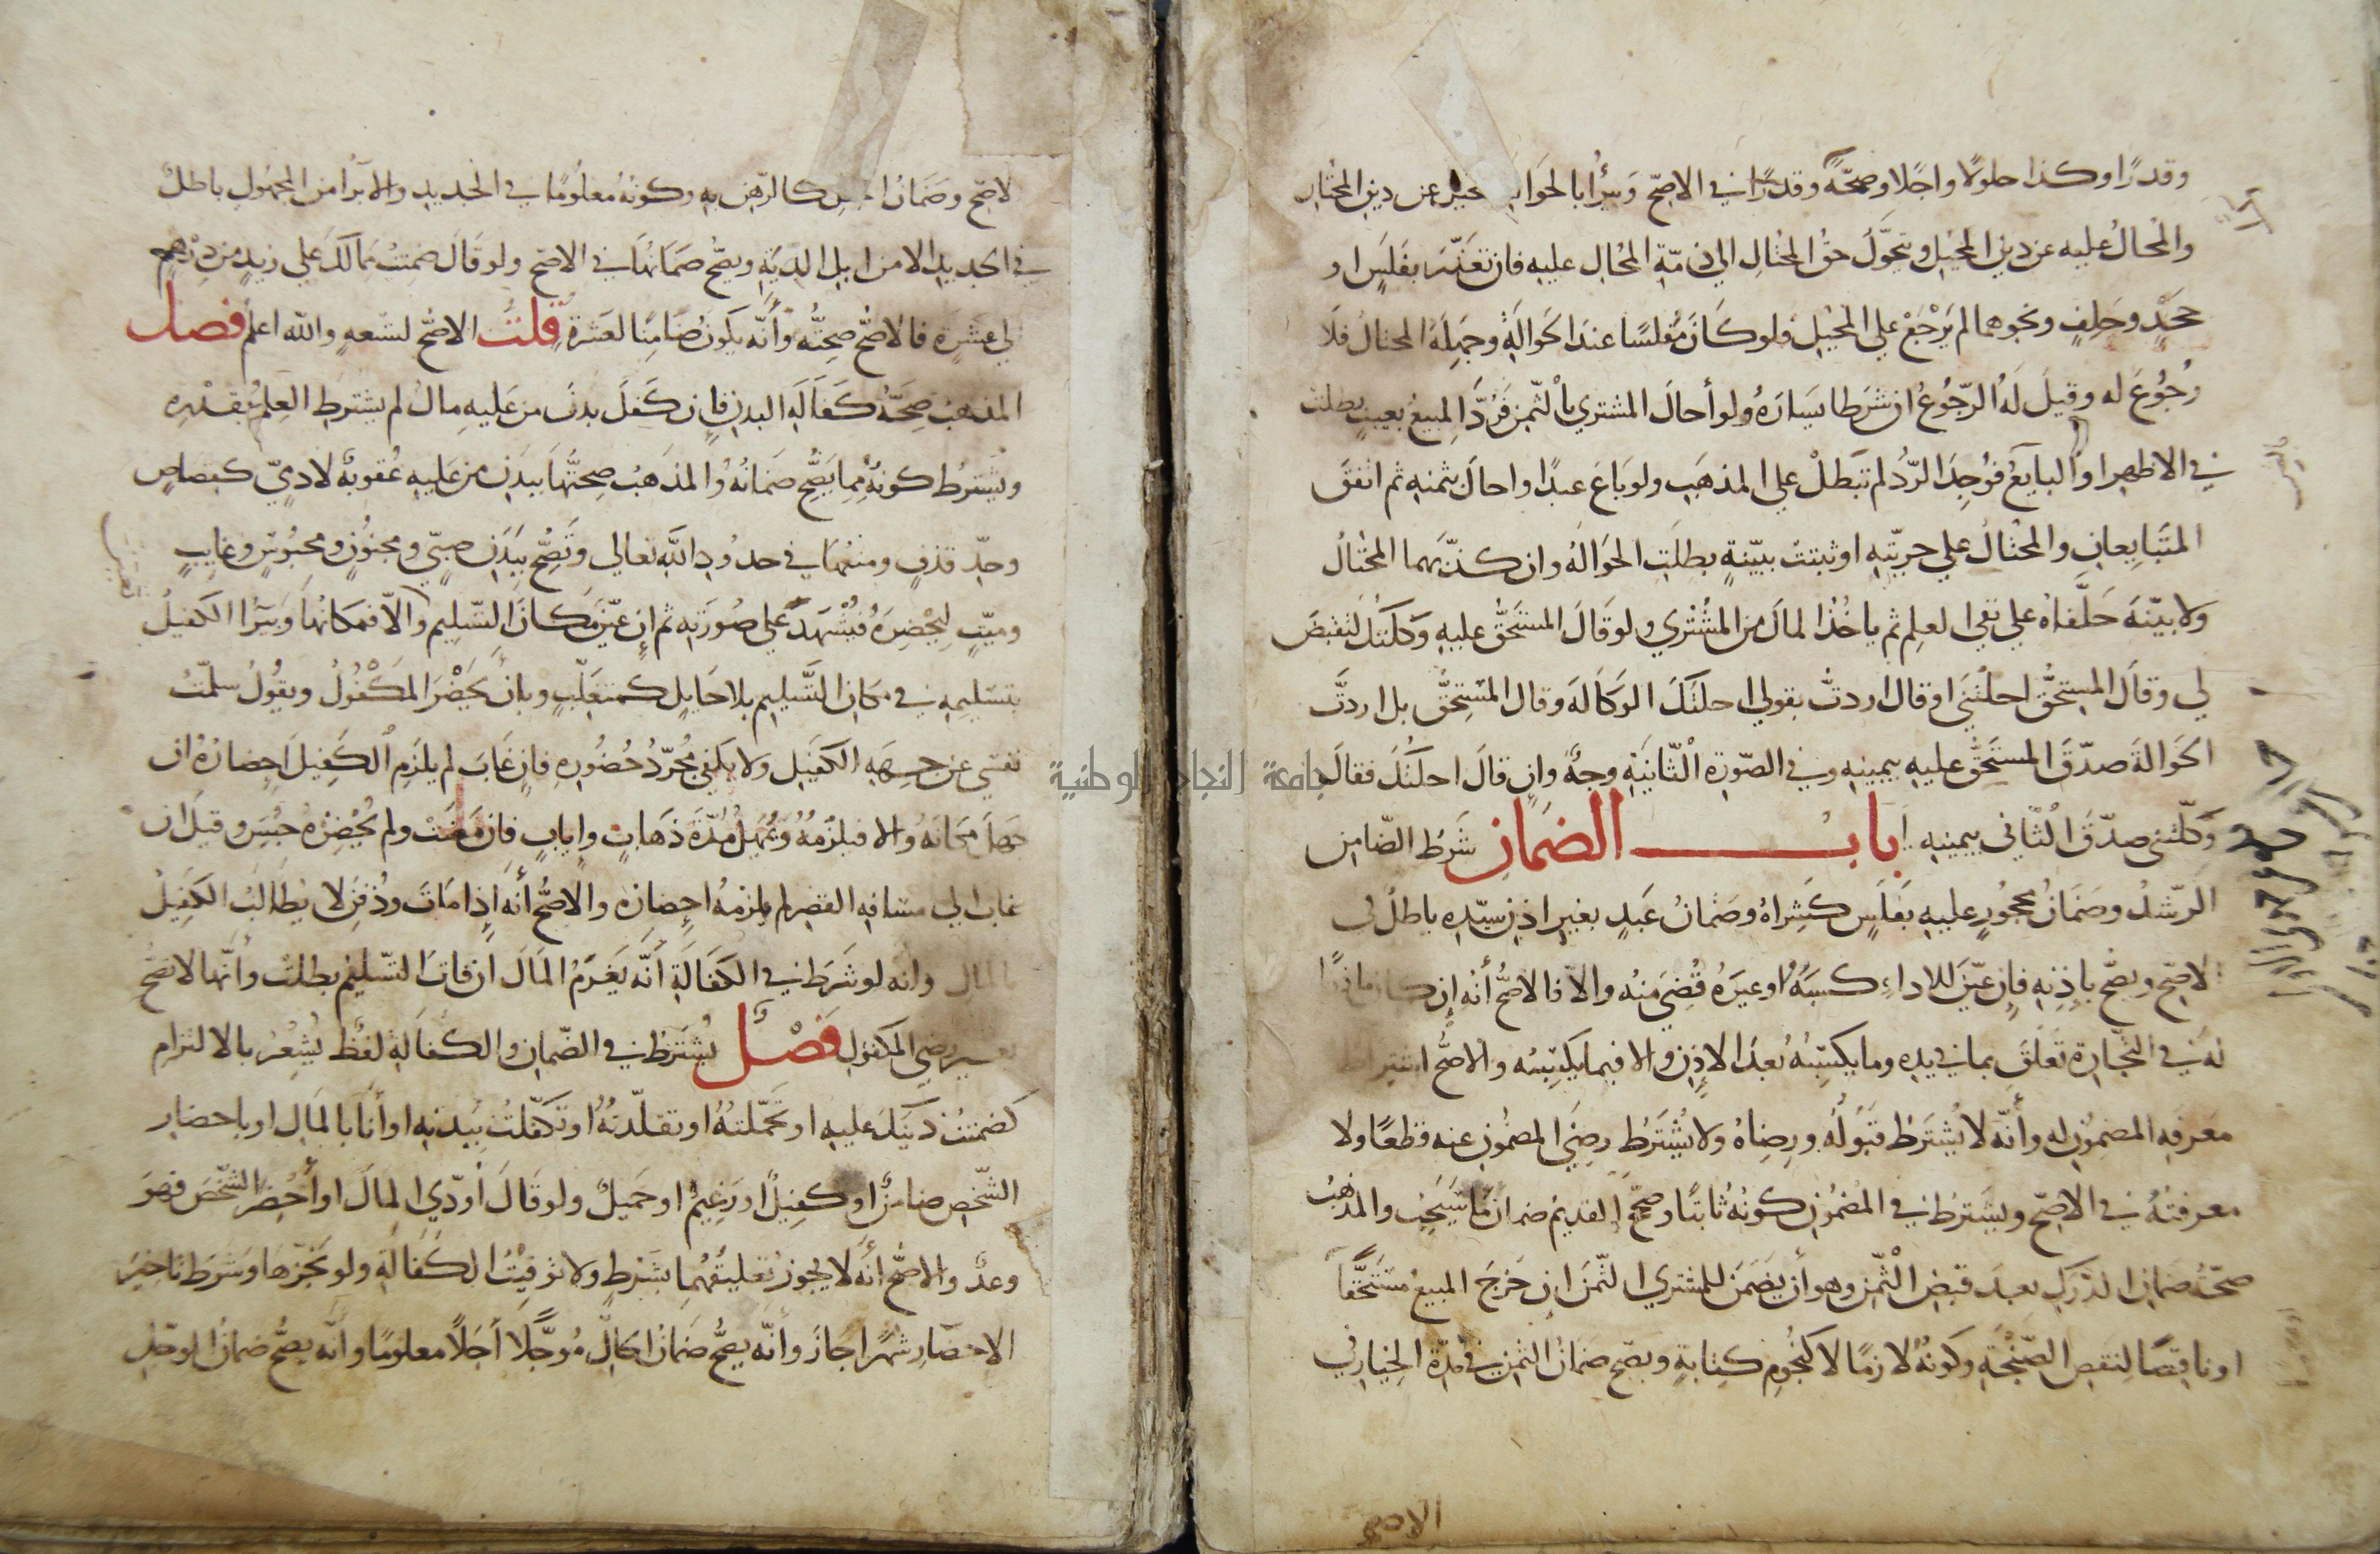 وقدرًا وكذا حلولًا واجلا وصحّةً وكسرًا في الاصح ويبرأ بالحوالة المحيل عن دين المحتال
والمحال عليه عن دين المحيل ويتحوّل حق المحتال الي ذمّة المحال عليه فان تعذّر بفلس او
جحدٍ وحلفٍ ونحوهما لم يرجع علي المحيل فلو كان مفلسًا عند الحوالة وجهله المحتال فلا
رجوع له وقيل له الرجوع ان شرط يساره ولو أحال المشتري بالثمن فرد المبيع بعيب بطلت
في الاظهر او البايع فوجد الرد لم تبطل علي المذهب ولو باع عبدًا واحال بثمنه ثم اتفق
المتبايعان والمحتال علي حريّته او ثبتت ببيّنةٍ بطلت الحوالة وان كذّبهما المحتال
ولا بيّنة حلّفاه علي نفي العلم ثم ياخذ المال من المشتري ولو قال المستحق عليه وكلتك لتقبض
لي وقال المستحق احلتني او قال اردت بقولي احلتك الوكالة وقال المستحق بل اردت
الحوالة صدّق المستحق عليه بيمينه وفي الصّورة الثّانية وجهٌ وان قال احلتك فقال
وكّلتني صدّق الثّاني بيمينه باب الضمان شرط الضّامن
الرّشد وضمان محجورٍ عليه بفلس كشراه وضمان عبدٍ بغير اذن سيّده باطل في
الاصح ويصح باذنه فان عيّن للاداء كسبه او غيره قضي منه والا فالاصح أنه إن كان ماذونًا
له في التّجارة تعلّق بما في يده وما يكسبه بعد الاذن والا فيما يكسبه والاصح اشتراط
معرفة المضمون له وأنّه لا يشترط قبوله ورضاه ولا يشترط رضي المضمون عنه قطعًا ولا
معرفته في الاصح ويشترط في المضمون كونه ثابتًا وصحّح القديم ضمان ما سيجب والمذهب
صحّة ضمان الدّرك بعد قبض الثّمن وهو أن يضمن للمشتري الثّمن ان خرج المبيع مستحقًّا
او ناقصًا لنقص الصّنجة وكونه لازمًا لا كنجوم كتابةٍ ويصحّ ضمان الثمن في مدّة الخيار في
الاصح
لاصح وضمان كالرّهن به وكونه معلومًا في الجديد والابرا من المجهول باطل
في الجديد الا من ابل الدية ويصحّ ضمانها في الاصح ولو قال ضمنت مما لك علي زيد من درهم
الي عشرة فالاصح صحّته وأنّه يكون ضامنًا لعشرة قلت الاصح لتسعه والله اعلم فصل
المذهب صحّة كفالة البدن فإن كفل بدن من عليه مال لم يشترط العلم بقدره
ويشترط كونه مما يصحّ ضمانه والمذهب صحتها ببدن من عليه عقوبة لادميّ كقصاص
وحدّ قذف ومنعها في حدود الله تعالي وتصحّ ببدن صبيّ ومجنون ومحبوس وغايب
وميّت ليحضره فيشهد علي صورته ثم إن عيّن مكان التسليم والا فمكانها ويبرا الكفيل
بتسليمه في مكان التّسليم بلا حايل كمتغلّب وبان يحضر المكفول ويقول سلّمت
نفسي عن جهة الكفيل ولا يكفي مجرّد حضوره فان غاب لم يلزم الكفيل احضاره ان
جهل مكانه والا فيلزمه ويمهل مدّة ذهاب واياب فان مضت ولم يحضره حبس وقيل ان
غاب الي مسافه القصر لم يلزمه إحضاره والاصحّ أنه إذا مات ودفن لا يطالب الكفيل
بالمال وانه لو شرط في الكفالة أنّه يغرم المال ان فات التّسليم بطلت وأنّها لا تصح
بغير رضي المكفول فصل يشترط في الضّمان والكفالة لفظ يشعر بالالتزام
كضمنت دينك عليه او تحمّلته او تقلّدته او تكفّلت ببدنه او أنا بالمال او باحضار
الشّخص ضامنٌ او كفيلٌ او زعيمٌ او حميلٌ ولو قال أودّي المال او أحضر الشّخص فهو
وعدٌ والاصحّ أنّه لا يجوز تعليقهما بشرط ولا توقيت الكفالة ولو نجّزها وشرط تاخير
الاحضار شهرًا جاز وأنّه يصحّ ضمان الحالّ مؤجّلًا أجلًا معلومًا وأنّه يصحّ ضمان المؤجّل
جامعة النجاح الوطنية